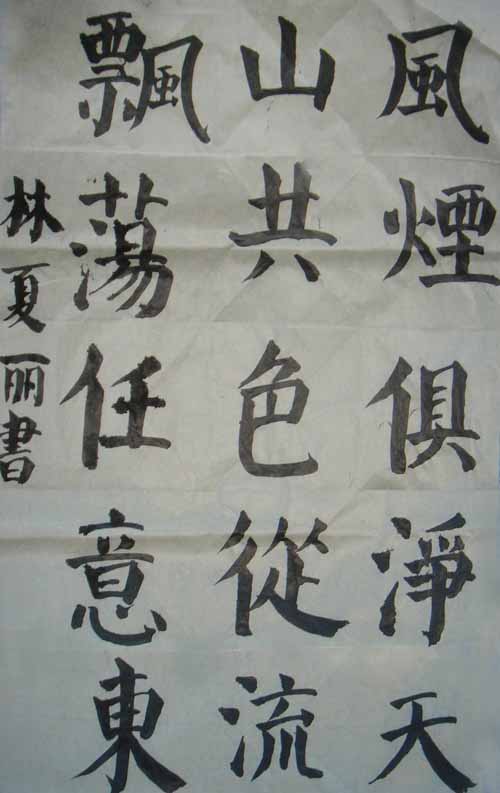 風煙俱淨天
山共色從流
飄蕩任意東
林夏丽書